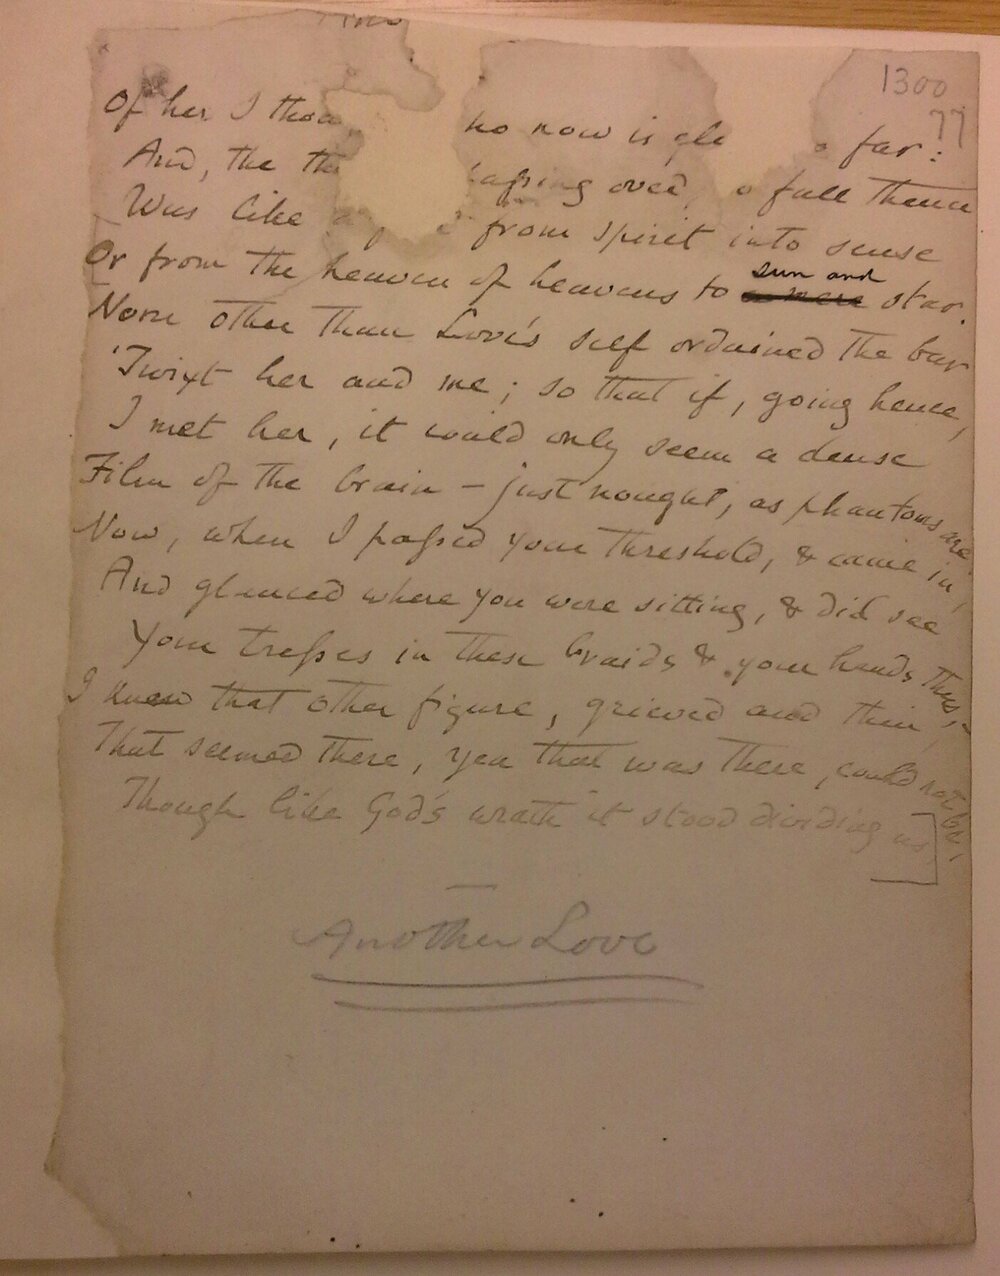 1300
77
Of her I thou no now is gle o far:
And, the th apsing over, o fall thence
Was like a from spirit into sense
Or from the heaven of heavens to sun and star.
None other than Love's self ordained the bar
'Twixt her and me; so that if, going hence,
I met her, it could only seem a dense
Film of the brain – just nought, as phantoms are.
Now, when I passed your threshold, & came in,
And glanced where you were sitting, & did see
Your tresses in these braids & your hands thus,–
I knew that other figure, grieved and thin,
That seemed there, yea that was there, could not be,
Though like God's wrath it stood dividing us.
Another Love